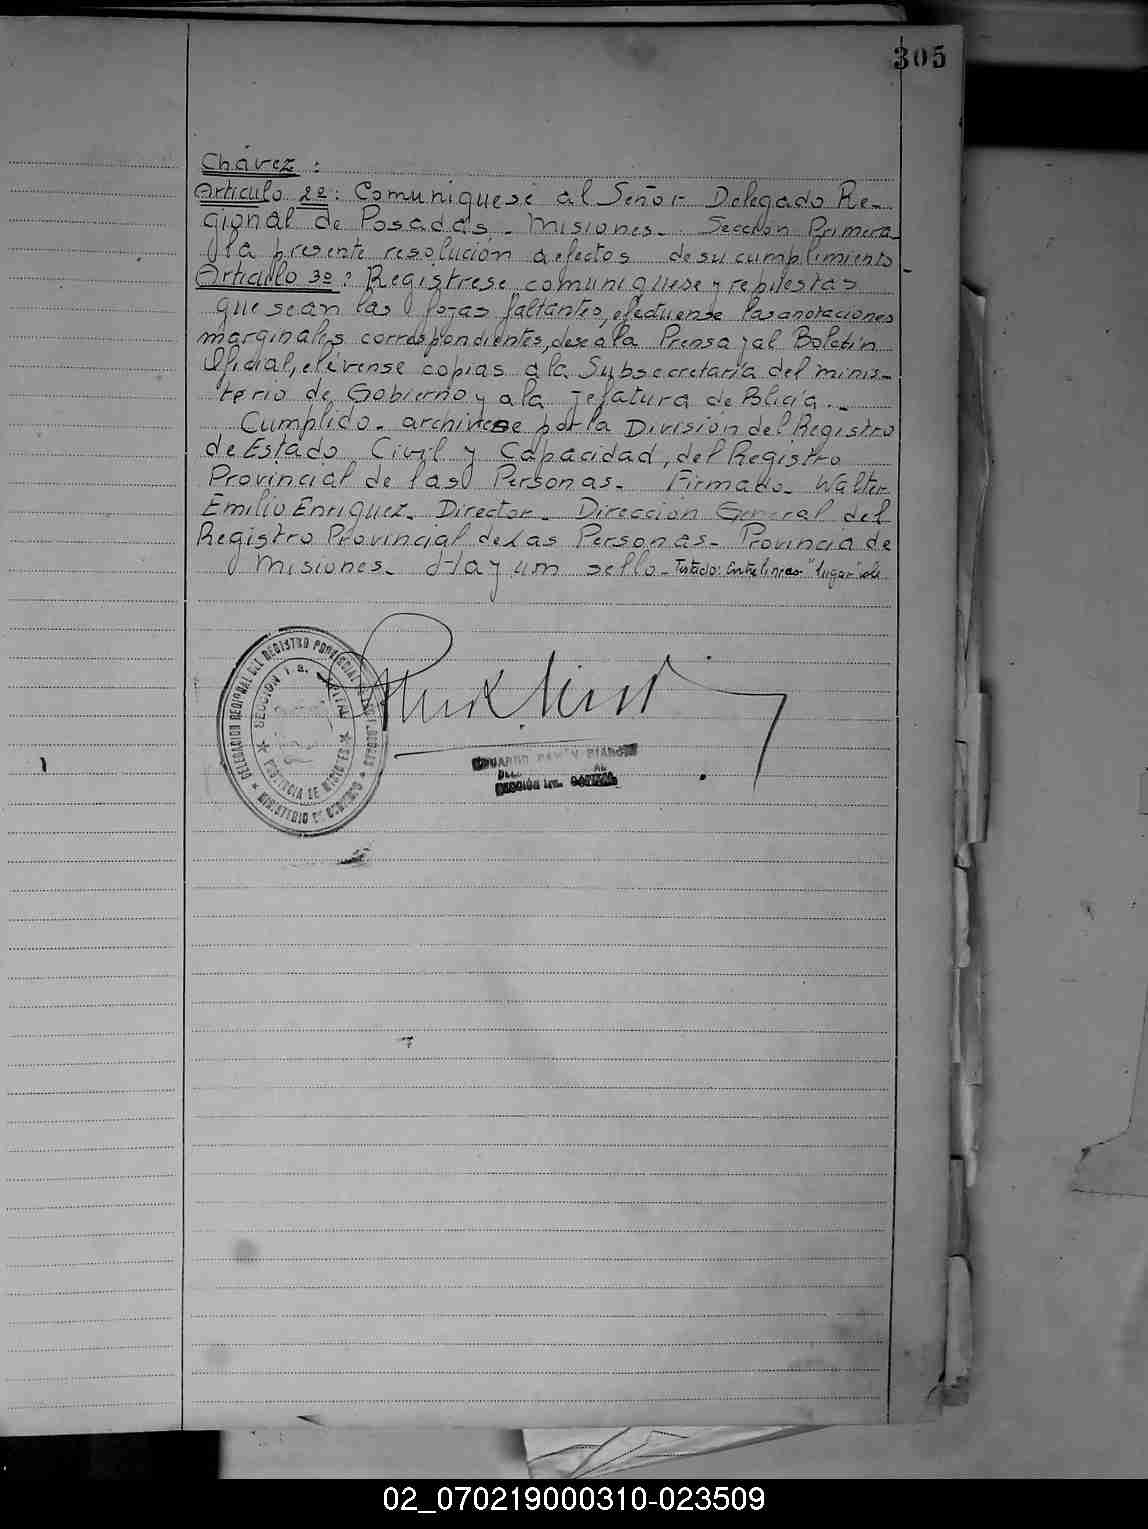 305
Chávez :
Artículo 2º : Comuniquese al Señor Delegado Re-
gional de Posadas - Misiones - Sección Primera
la presente resolución a efectos de su cumplimiento
Artículo 3º : Registrese comuniquese y repuestas
que sean las fojas faltantes, efectuense las anotaciones
marginales correspondientes, dese a la Prensa y al Boletín
Oficial, elévense copias a la Subsecretaría del minis-
terio de Gobierno y a la jefatura de Policía.-
Cumplido - archivese por la División del Registro
de Estado Civil y Capacidad, del Registro
Provincial de las Personas - Firmado - Walter
Emilio Enriquez - Director - Dirección General del
Registro Provincial de Las Personas - Provincia de
Misiones - Hay un sello - Testado: Entrelineas "lugar" vale
DELEGACION REGIONAL DEL REGISTRO PROVINCIAL
SECCION 1a.
PROVINCIA DE MISIONES
MINISTERIO DE GOBIERNO
EDUARDO RAMON
SECCIÓN 1ra. CAPITAL
02_070219000310-023509